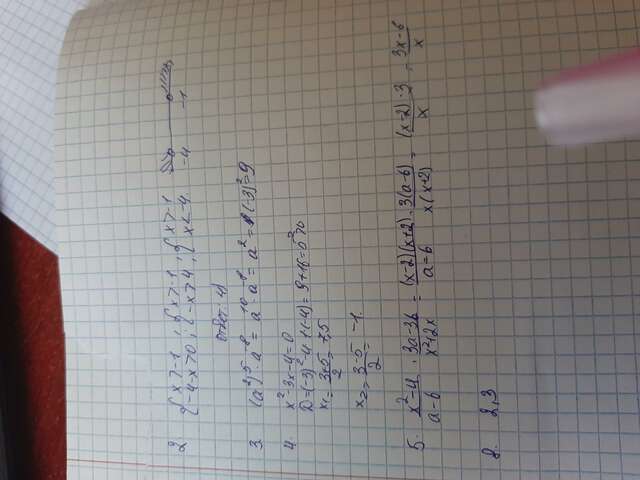 2 { x > -1 { x > -1 { x > -1
{ -4-x > 0 , { -x > 4 , { x < -4 -4 -1
Ответ: 4)
3. (a²)⁵ · a⁻⁸ = a¹⁰ · a⁻⁸ = a² = (-3)² = 9
4. x² 3x - 4 = 0
D = (-3)² - 4 · 1 · (-4) = 9 + 16 =
x₁ = 3+5/2 =
x₂ = 3-5/2 = -1.
5. x²-4/a-6 · 3a-36/x²+2x = (x-2)(x+2) · 3(a-6)/a=6 x(x+2) = (x-2) · 3/x = 3x-6/x
8. 2,3